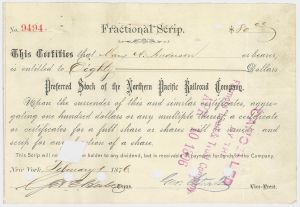 Fractional Scrip.
No. 9494. $80 00
This Certifies that Mary A. Anderson or bearer,
is entitled to Eighty Dollars
Preferred Stock of the Northern Pacific Railroad Company.
Upon the surrender of this and similar certificates, aggre-
gating one hundred dollars or any multiple thereof, a certificate
or certificates for a full share or shares will be issued and
scrip for any fraction of a share.
This Scrip will not holder to any dividend, but is receivable in payment for lands of the Company.
New York, February 1876
Vice-Prest.
CANCELLED
APR 10 1896